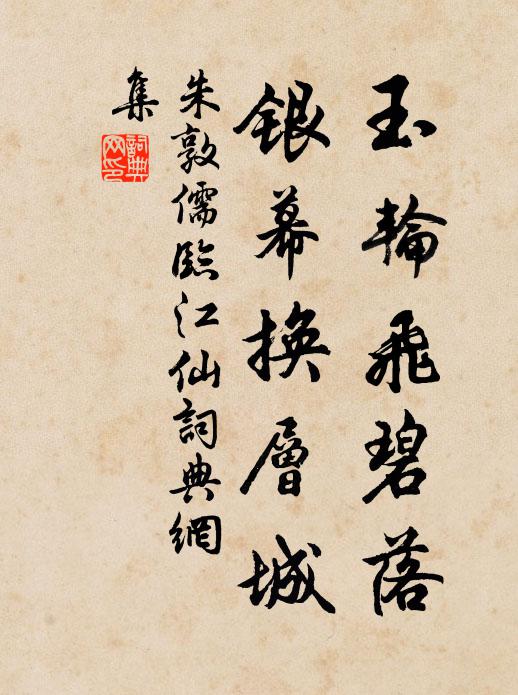 玉輪飛碧落
銀幕換層城
朱敦儒臨江仙詞典網
集
詞典
网印